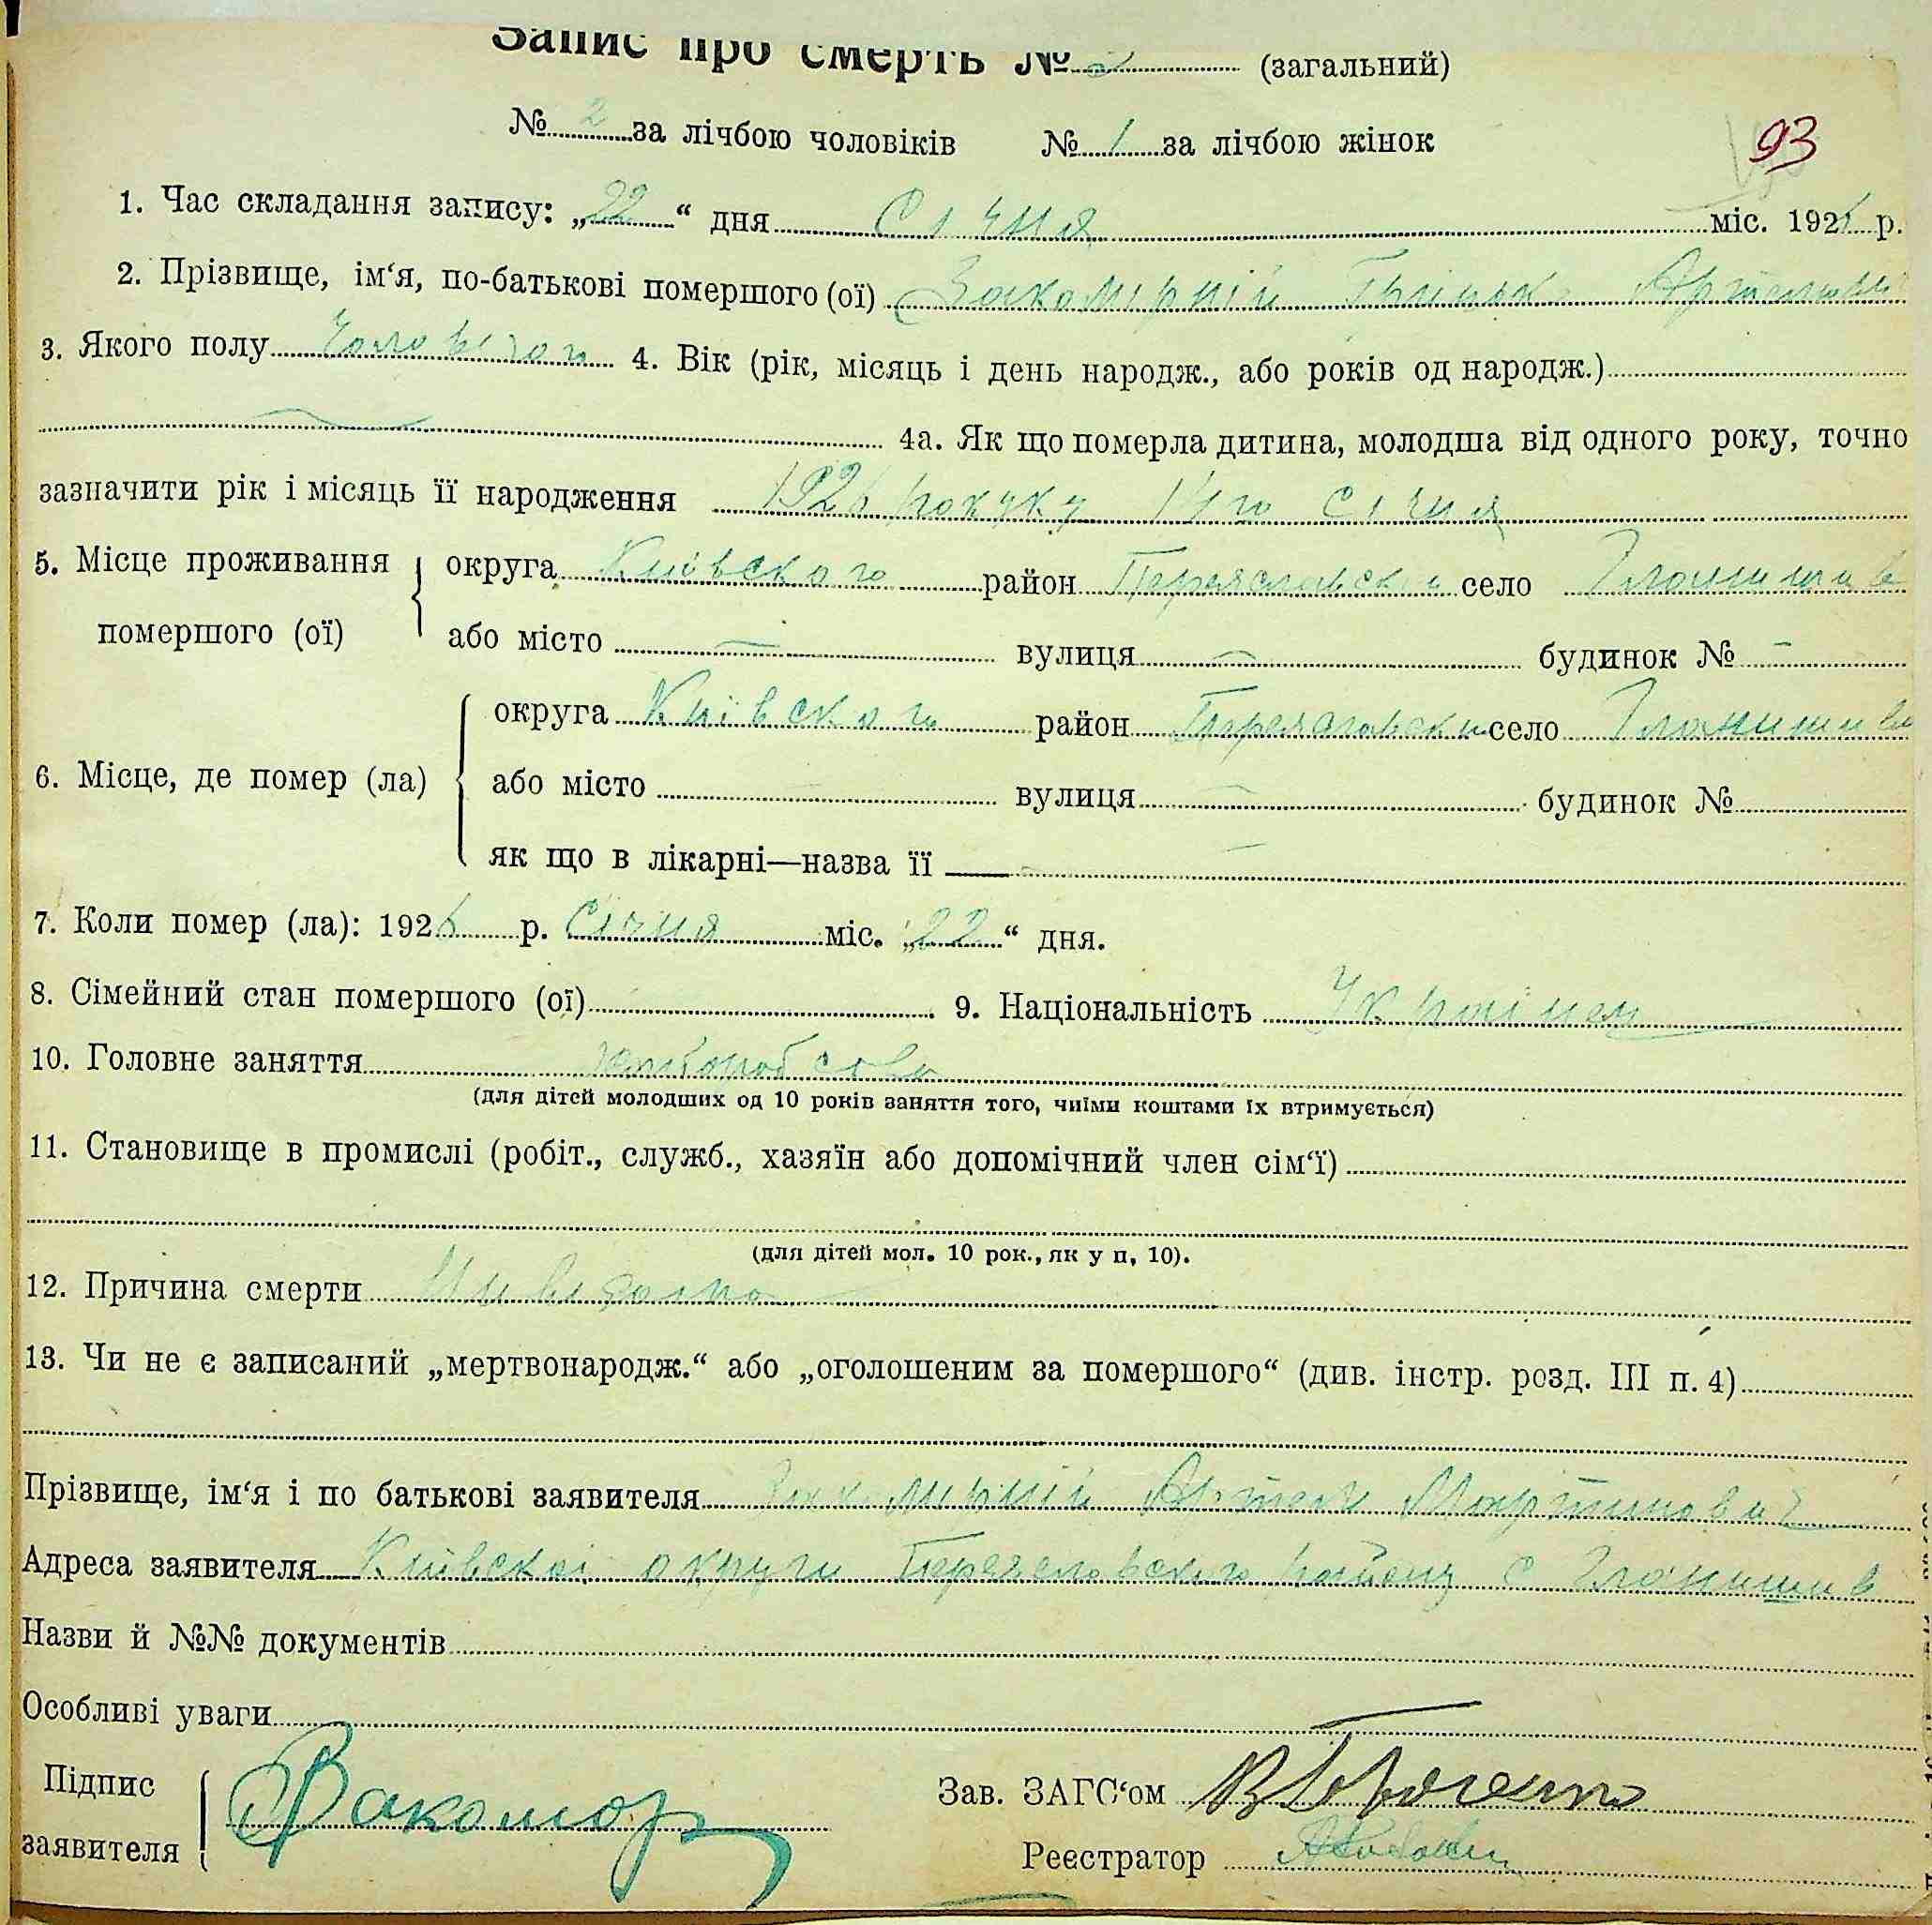 Запис про смерть № (загальний)
№ 2 за лічбою чоловіків № 1 за лічбою жінок
93
1. Час складання запису: „22“ дня Січня міс. 1926 р.
2. Прізвище, ім‘я, по-батькові помершого (ої) Закомірній Грицько
3. Якого полу 4. Вік (рік, місяць і день народж., або років од народж.)
4а. Як що померла дитина, молодша від одного року, точно
зазначити рік і місяць її народження 1926 року 14го Січня
5. Місце проживання округа Київского район Переяславски село
помершого (ої) або місто — вулиця — будинок № —
округа Київского район Переяславски село
6. Місце, де помер (ла) або місто — вулиця — будинок №
як що в лікарні—назва її —
7. Коли помер (ла): 1926 р. Січня міс. „22“ дня.
8. Сімейний стан помершого (ої) 9. Національність Украінец
10. Головне заняття
(для дітей молодших од 10 років заняття того, чиїми коштами їх втримується)
11. Становище в промислі (робіт., служб., хазяїн або допомічний член сім‘ї)
(для дітей мол. 10 рок., як у п, 10).
12. Причина смерти
13. Чи не є записаний „мертвонародж.“ або „оголошеним за помершого“ (див. інстр. розд. III п. 4)
Прізвище, ім‘я і по батькові заявителя Закомирній Артем Мартинович
Адреса заявителя Київскоі округи Переяславского району с
Назви й №№ документів
Особливі уваги
Підпис
заявителя Закомор
Зав. ЗАГС‘ом
Реєстратор